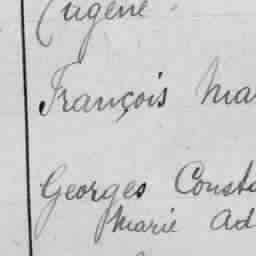 Eugène
François Mar
Georges Consta
Marie Ad